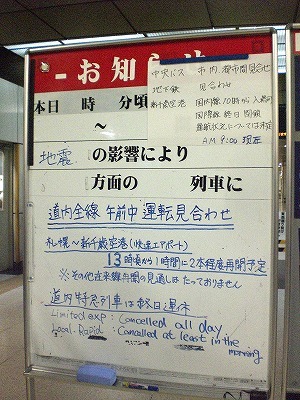 お知らせ
中央バス 市内、都市間見合せ
地下鉄 見合わせ
新千歳空港 国内線 10時から入館可
国際線 終日閉館
運航状況については未定
AM 9:00 現在
本日 時 分頃
〜
地震 の影響により
方面の 列車に
道内全線 午前中 運転見合わせ
札幌〜新千歳空港(快速エアポート)
13時頃から1時間に2本程度再開予定
※その他在来線再開の見通しはたっておりません
道内特急列車は終日運休
Limited exp : Cancelled all day
Local. Rapid : Cancelled at least in the morning